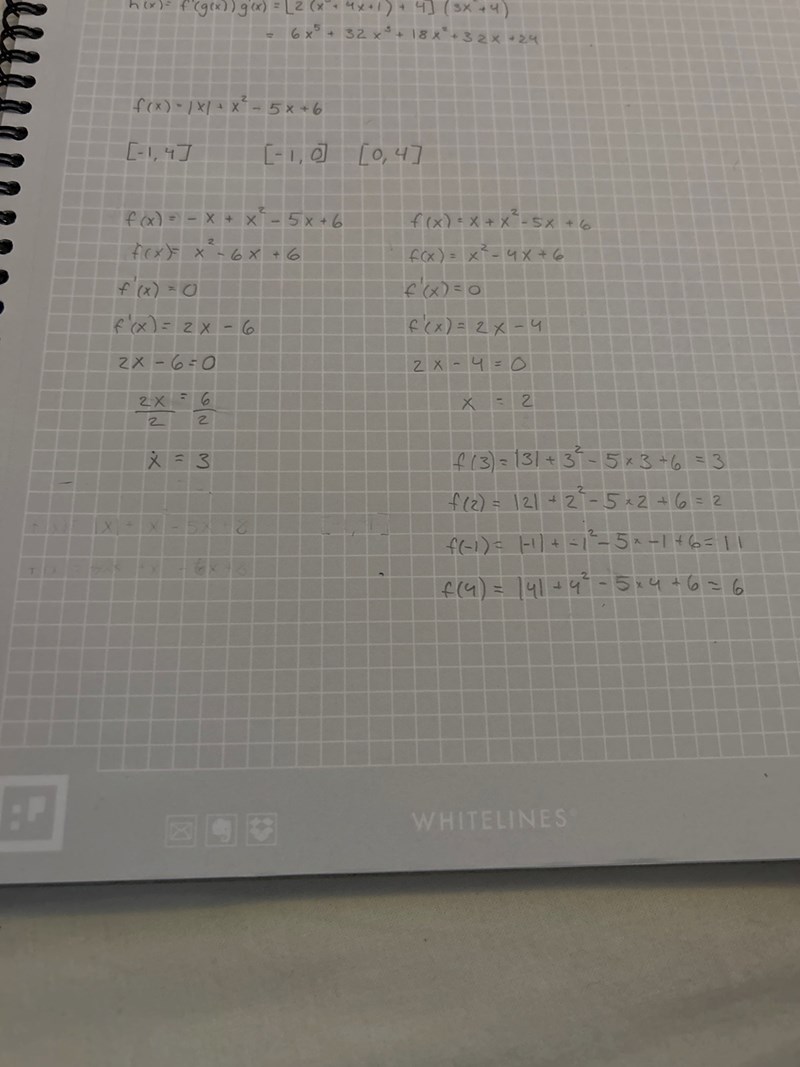 h(x) = f'(g(x)) g'(x) = [2 (x³ + 4x+1) + 4] (3x²+4)
= 6x⁵ + 32x³ + 18x² + 32x + 24
f(x) = |x| + x² - 5x + 6
[-1, 4] [-1, 0] [0, 4]
f(x) = - x + x² - 5x + 6 f(x) = x + x² - 5x + 6
f(x) = x² - 6x + 6 f(x) = x² - 4x + 6
f'(x) = 0 f'(x) = 0
f'(x) = 2x - 6 f'(x) = 2x - 4
2x - 6 = 0 2x - 4 = 0
2x/2 = 6/2 x = 2
x = 3 f(3) = |3| + 3² - 5 × 3 + 6 = 3
f(2) = |2| + 2² - 5 × 2 + 6 = 2
f(-1) = |-1| + -1² - 5 × -1 + 6 = 11
f(4) = |4| + 4² - 5 × 4 + 6 = 6
WHITELINES®